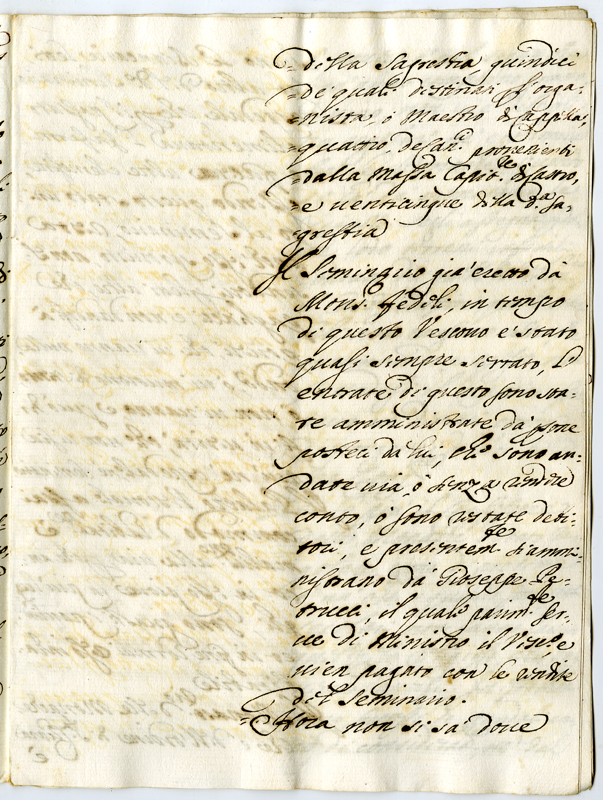 della Sagrestia quindici
de quali destinati p l'orga-
nista, ò Maestro di Cappella,
quattro, de Can.ci provenienti
dalla Massa Capit.re di Castro,
e venticinque della d.a Sa-
grestia
Il Seminario già eretto dà
Mons. Fedeli, in tempo
di questo Vescovo è stato
quasi sempre serrato, L'
entrate di questo sono sta-
te amministrate dà psone
posteci da lui, che sono an-
date via, ò senza render
conto, ò sono restate debi-
tori, e presentem.te si ammi-
nistrano dà Gioseppe Pe-
trucci, il quale parim.te ser-
ve di Ministro il Vesc.o, e
vien pagato con le rendite
del Seminario.
Hora non si sa dove